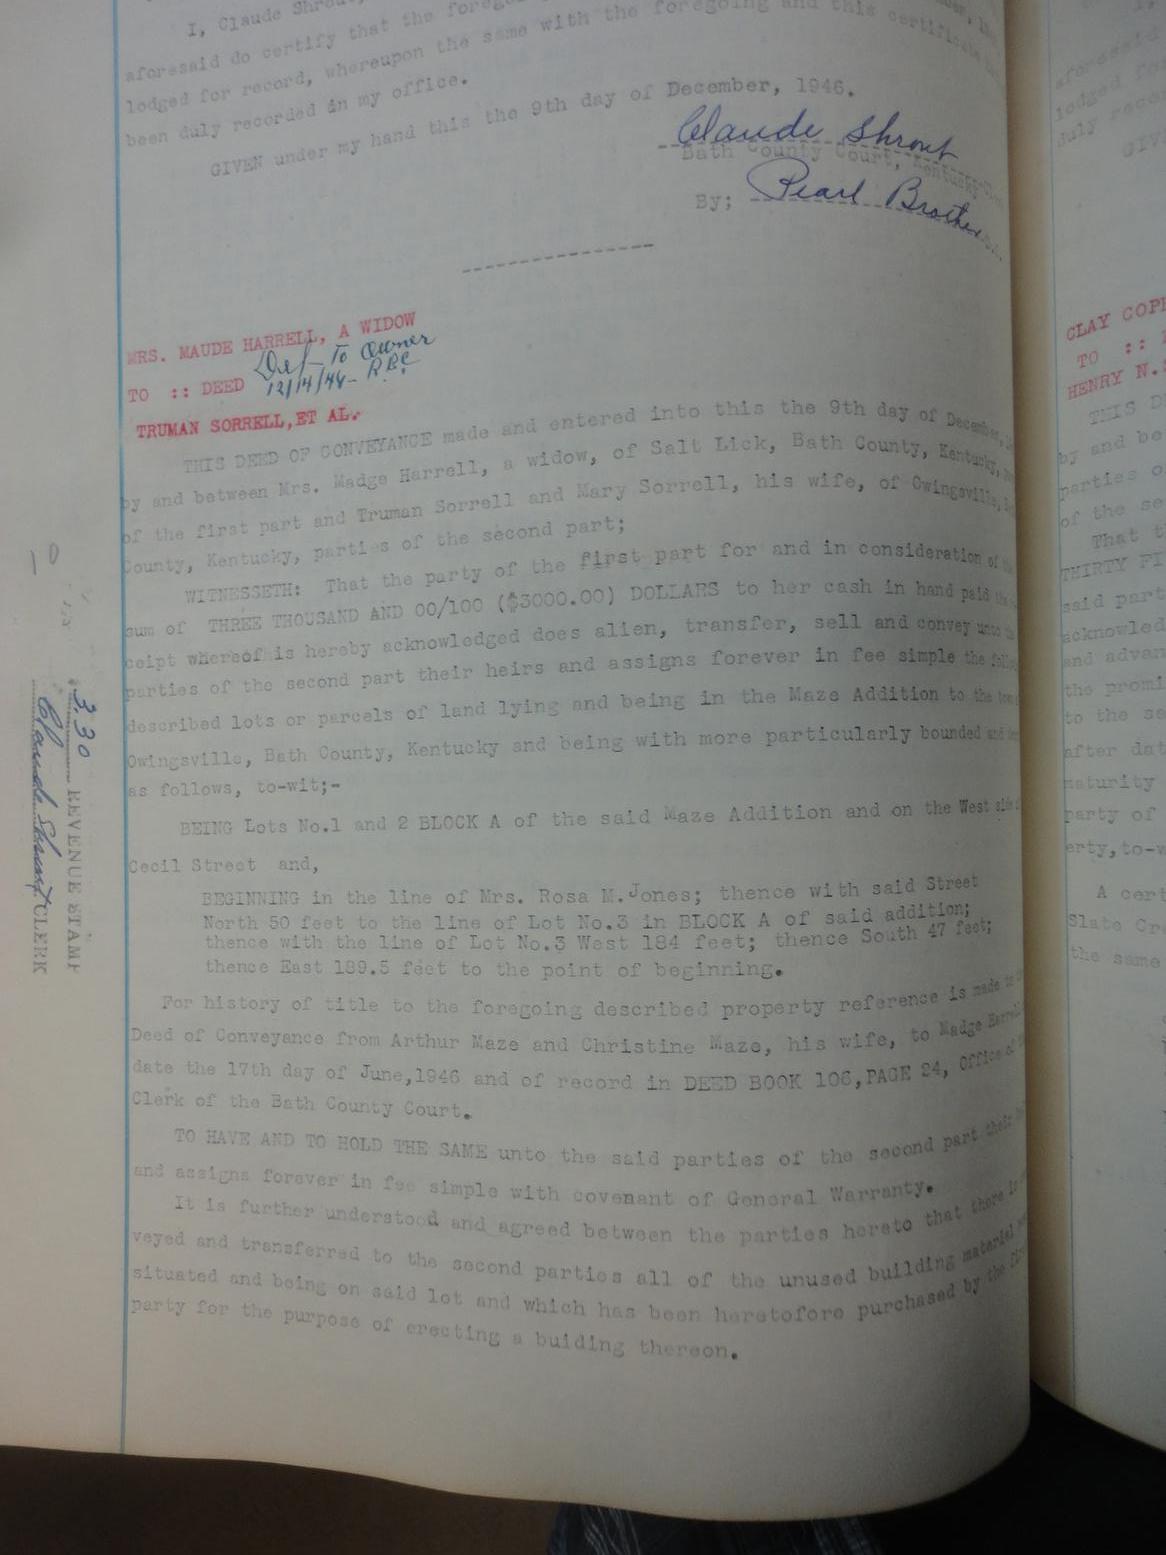 I, Claude Shrout,
aforesaid do certify that the
lodged for record, whereupon the same with the foregoing and this certificate
been duly recorded in my office.
GIVEN under my hand this the 9th day of December, 1946.
Claude Shrout
Bath County Court, Kentucky
By; Pearl Brother
MRS. MAUDE HARRELL, A WIDOW
TO :: DEED
Del- To Owner
12/14/46- RBC
TRUMAN SORRELL,ET AL.
THIS DEED OF CONVEYANCE made and entered into this the 9th day of December,
by and between Mrs. Madge Harrell, a widow, of Salt Lick, Bath County, Kentucky,
of the first part and Truman Sorrell and Mary Sorrell, his wife, of Owingsville,
County, Kentucky, parties of the second part;
WITNESSETH: That the party of the first part for and in consideration of
sum of THREE THOUSAND AND 00/100 ($3000.00) DOLLARS to her cash in hand paid
ceipt whereof is hereby acknowledged does alien, transfer, sell and convey unto
parties of the second part their heirs and assigns forever in fee simple the
described lots or parcels of land lying and being in the Maze Addition to the
Owingsville, Bath County, Kentucky and being with more particularly bounded and
as follows, to-wit;-
BEING Lots No.1 and 2 BLOCK A of the said Maze Addition and on the West side
Cecil Street and,
BEGINNING in the line of Mrs. Rosa M.Jones; thence with said Street
North 50 feet to the line of Lot No.3 in BLOCK A of said addition;
thence with the line of Lot No.3 West 184 feet; thence South 47 feet;
thence East 189.5 feet to the point of beginning.
For history of title to the foregoing described property reference is made to
Deed of Conveyance from Arthur Maze and Christine Maze, his wife, to Madge Harrell
date the 17th day of June,1946 and of record in DEED BOOK 106,PAGE 24, Office of
Clerk of the Bath County Court.
TO HAVE AND TO HOLD THE SAME unto the said parties of the second part their
and assigns forever in fee simple with covenant of General Warranty.
It is further understood and agreed between the parties hereto that there is
veyed and transferred to the second parties all of the unused building material
situated and being on said lot and which has been heretofore purchased by the
party for the purpose of erecting a buiding thereon.
3.30 REVENUE STAMP
Claude Shrout CLERK
10
CLAY
TO ::
HENRY N.
THIS
by and be
parties
of the se
That
THIRTY
said part
acknowled
and advan
the promi
to the se
after dat
maturity
party of
erty,to-w
A cert
Slate Cr
the same